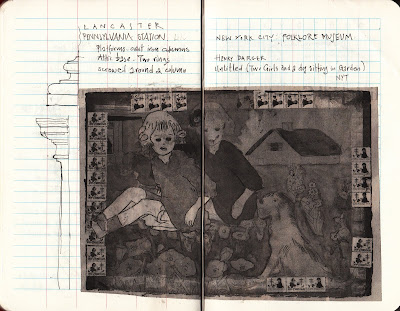 LANCASTER
PENNSYLVANIA STATION
Platforms cast iron columns
Attic base. Two rings
around a column
NEW YORK CITY, FOLKLORE MUSEUM
HENRY DARGER
Untitled (Two Girls and a dog sitting in Garden)
NYT